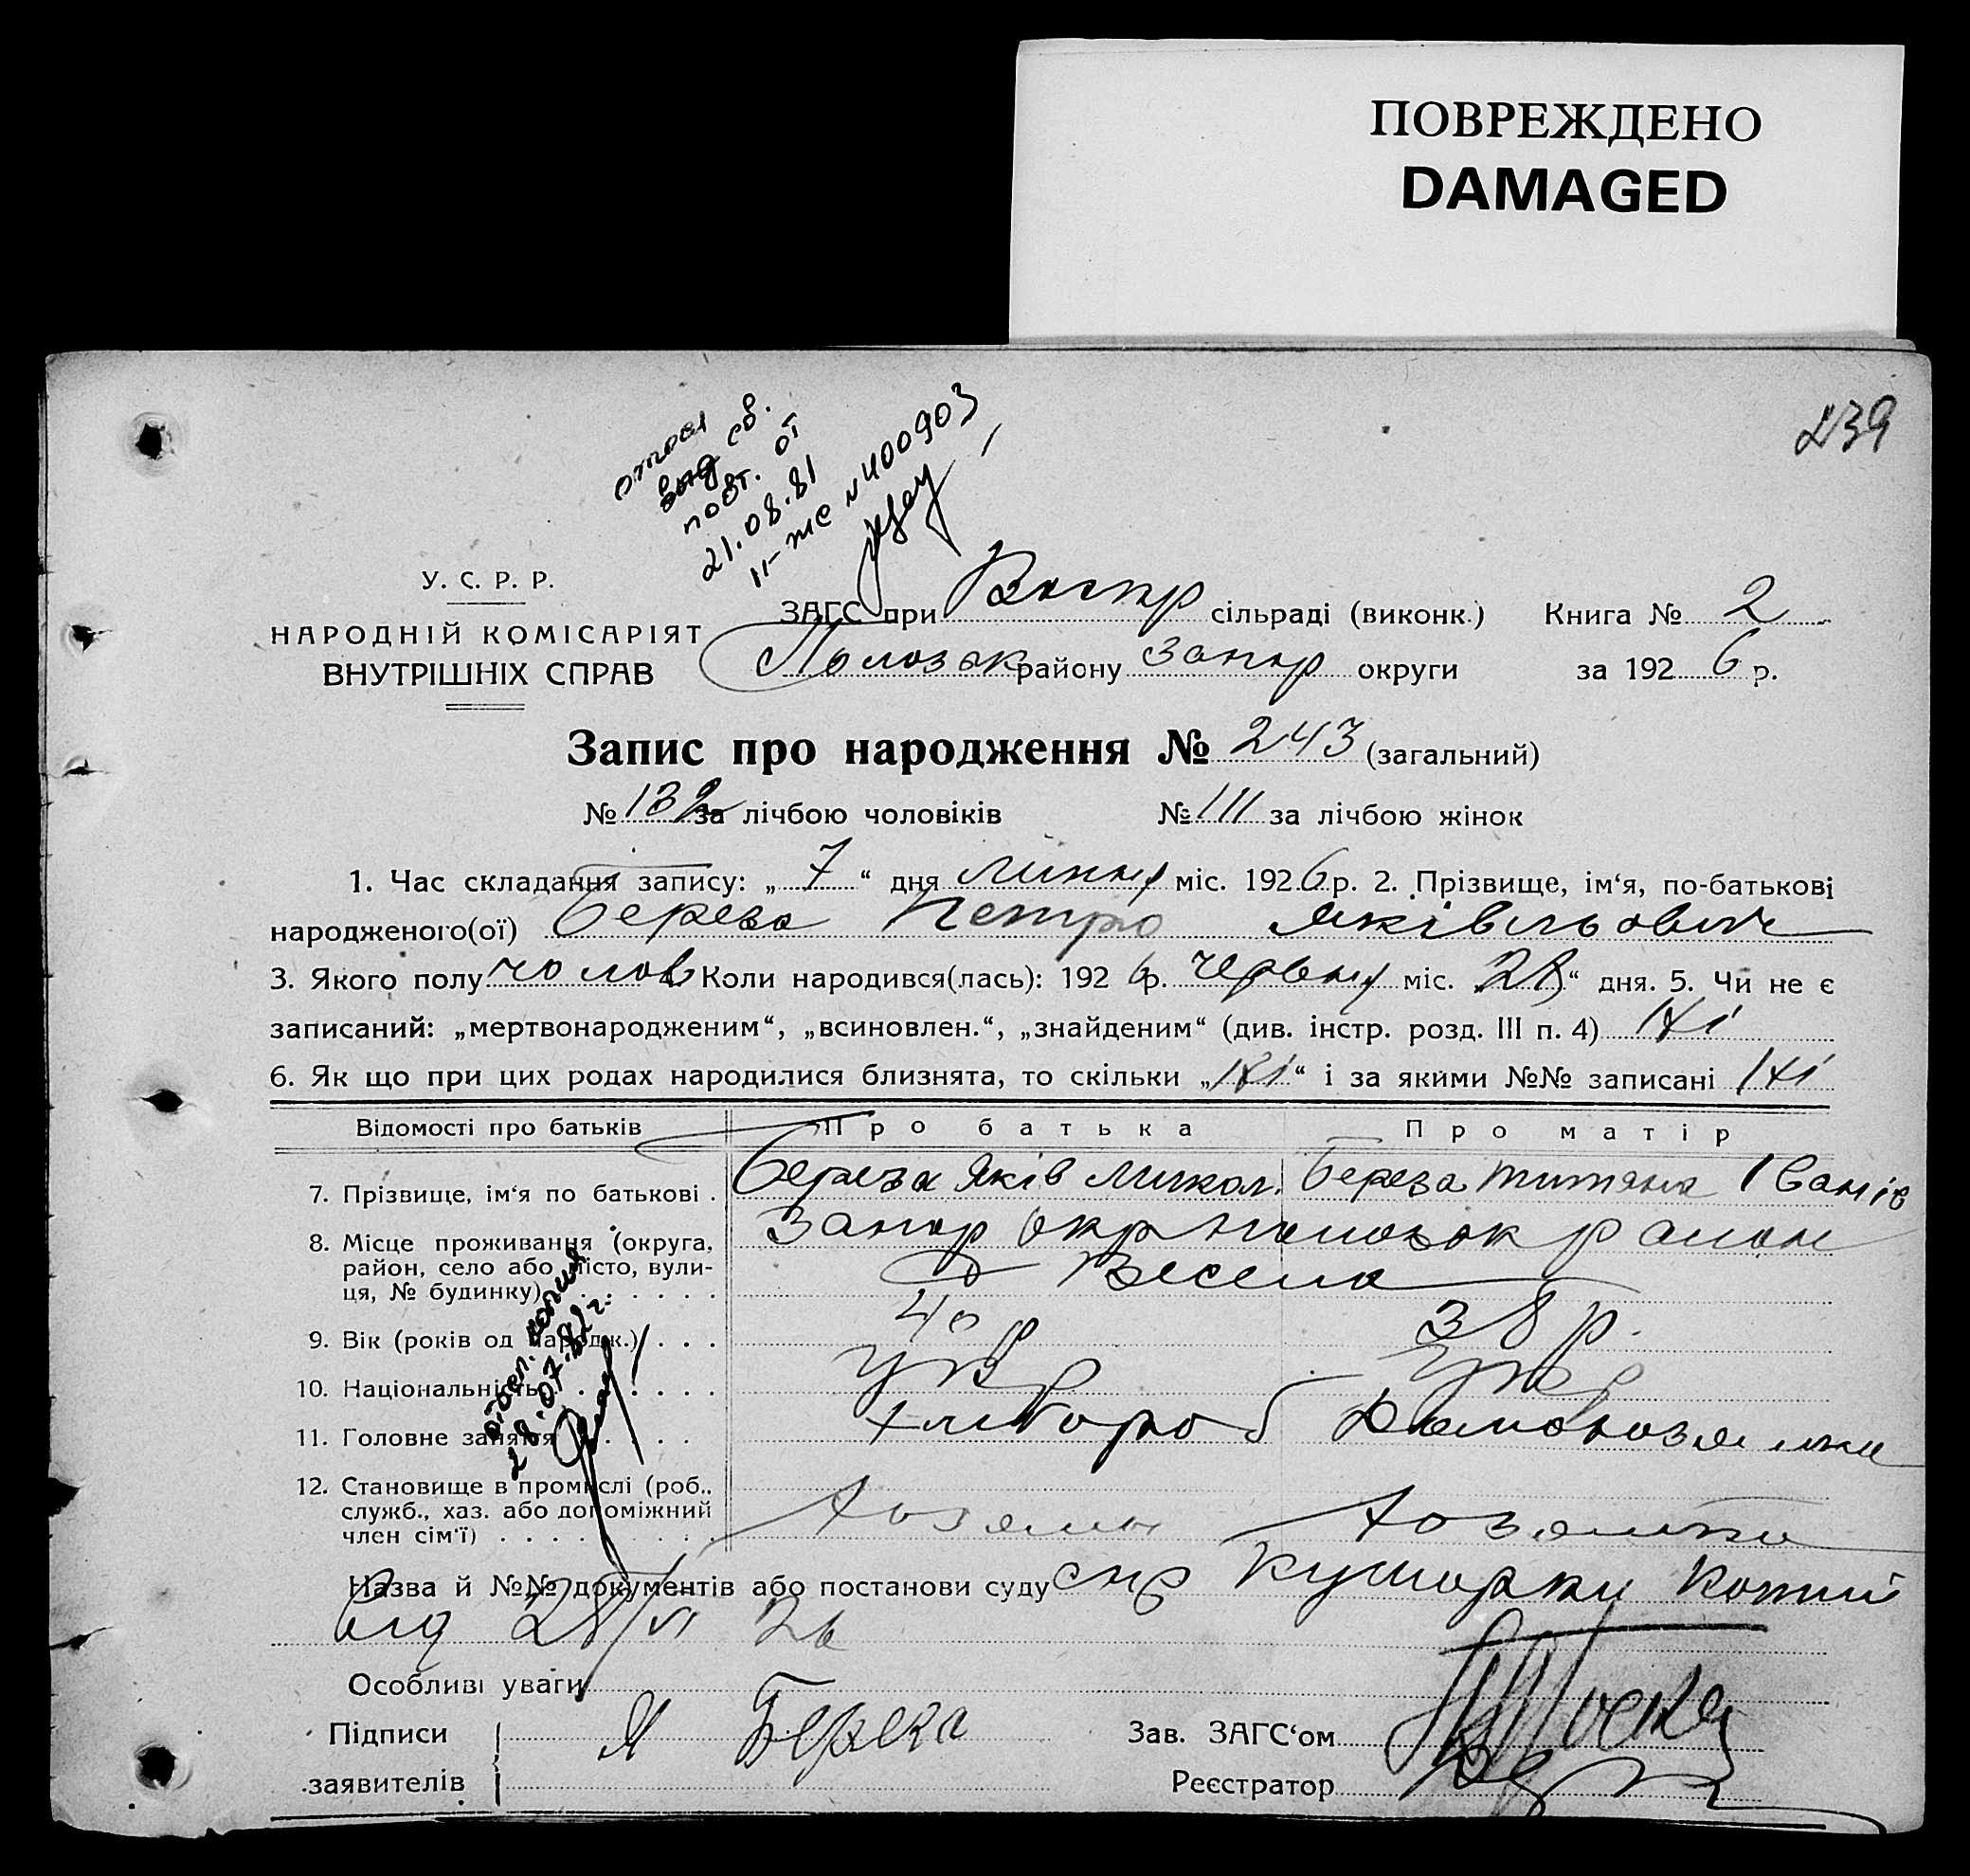 ПОВРЕЖДЕНО
DAMAGED
239
св.
повт. от
21.08.81
II-ЖС № 400903
У. С. Р. Р.
НАРОДНІЙ КОМІСАРІЯТ
ВНУТРІШНІХ СПРАВ
ЗАГС при сільраді (виконк.) Книга № 2
району Запор округи за 1926 р.
Запис про народження № 243 (загальний)
№ 132 за лічбою чоловіків № 111 за лічбою жінок
1. Час складання запису: „ 7 “ дня липня міс. 1926 р. 2. Прізвище, ім‘я, по-батькові
народженого(ої) Береза Петро Яківльович
3. Якого полу чолов Коли народився(лась): 1926 р. червня міс. 28 “ дня. 5. Чи не є
записаний: „мертвонародженим“, „всиновлен.“, „знайденим“ (див. інстр. розд. III п. 4) Ні
6. Як що при цих родах народилися близнята, то скільки „ Ні “ і за якими №№ записані Ні
Відомості про батьків Про батька Про матір
7. Прізвище, ім‘я по батькові . Береза Яків Микол. Береза Титяна Іванів
8. Місце проживання (округа, Запор окр Полозок район
район, село або місто, вули-
ця, № будинку) . . . . . . . Весела
9. Вік (років од народж.) . . . 40 р 38 р.
10. Національність . . . . . . Укр Укр
11. Головне заняття . . . . . Хлібороб Домохозяйка
12. Становище в промислі (роб.,
служб., хаз. або допоміжний
член сім‘ї) . . . . . . . . . Хозяин Хозяйка
копия
28.07.82 г.
Назва й №№ документів або постанови суду
від 28/VI 26
Особливі уваги
Підписи Я Береза Зав. ЗАГС‘ом
заявителів Реєстратор